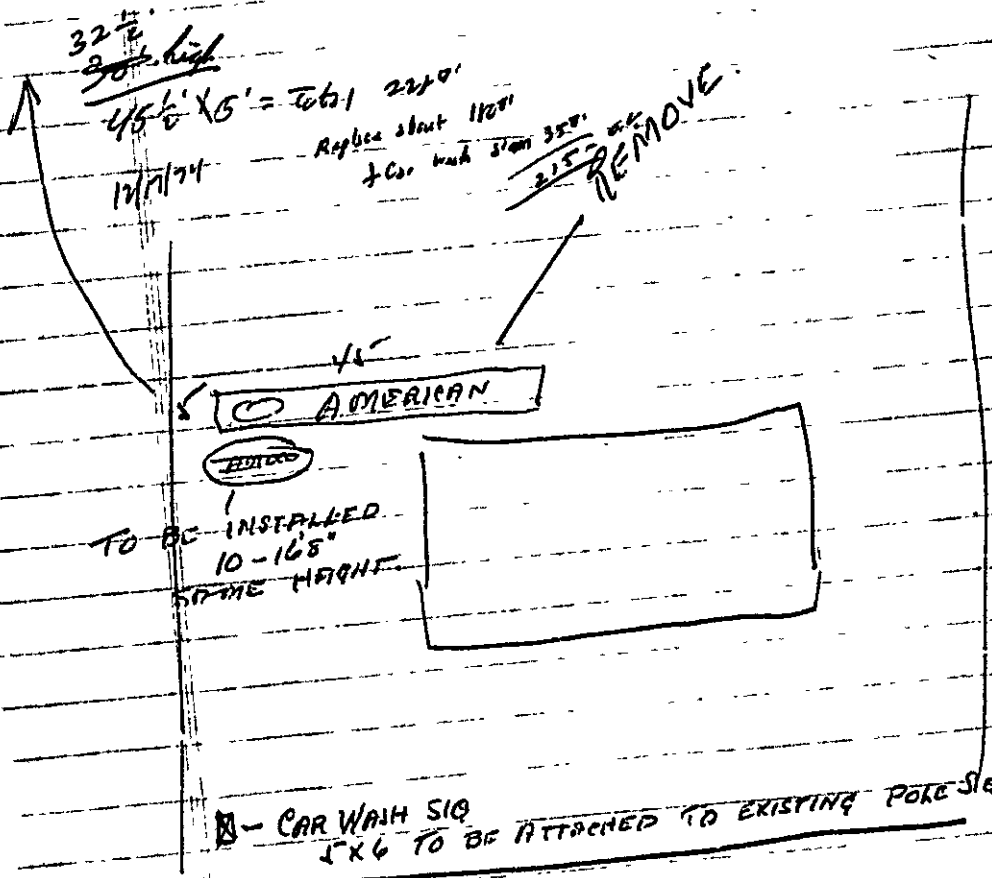 32 ½'
30' high
45 ½' X 5' = total
12/17/74
Replace about
wash sign
215
REMOVE
45
5
AMERICAN
AMOCO
TO BE INSTALLED
10-16'8"
SAME HEIGHT
- CAR WASH SIG
5X6 TO BE ATTACHED TO EXISTING POLE SIG